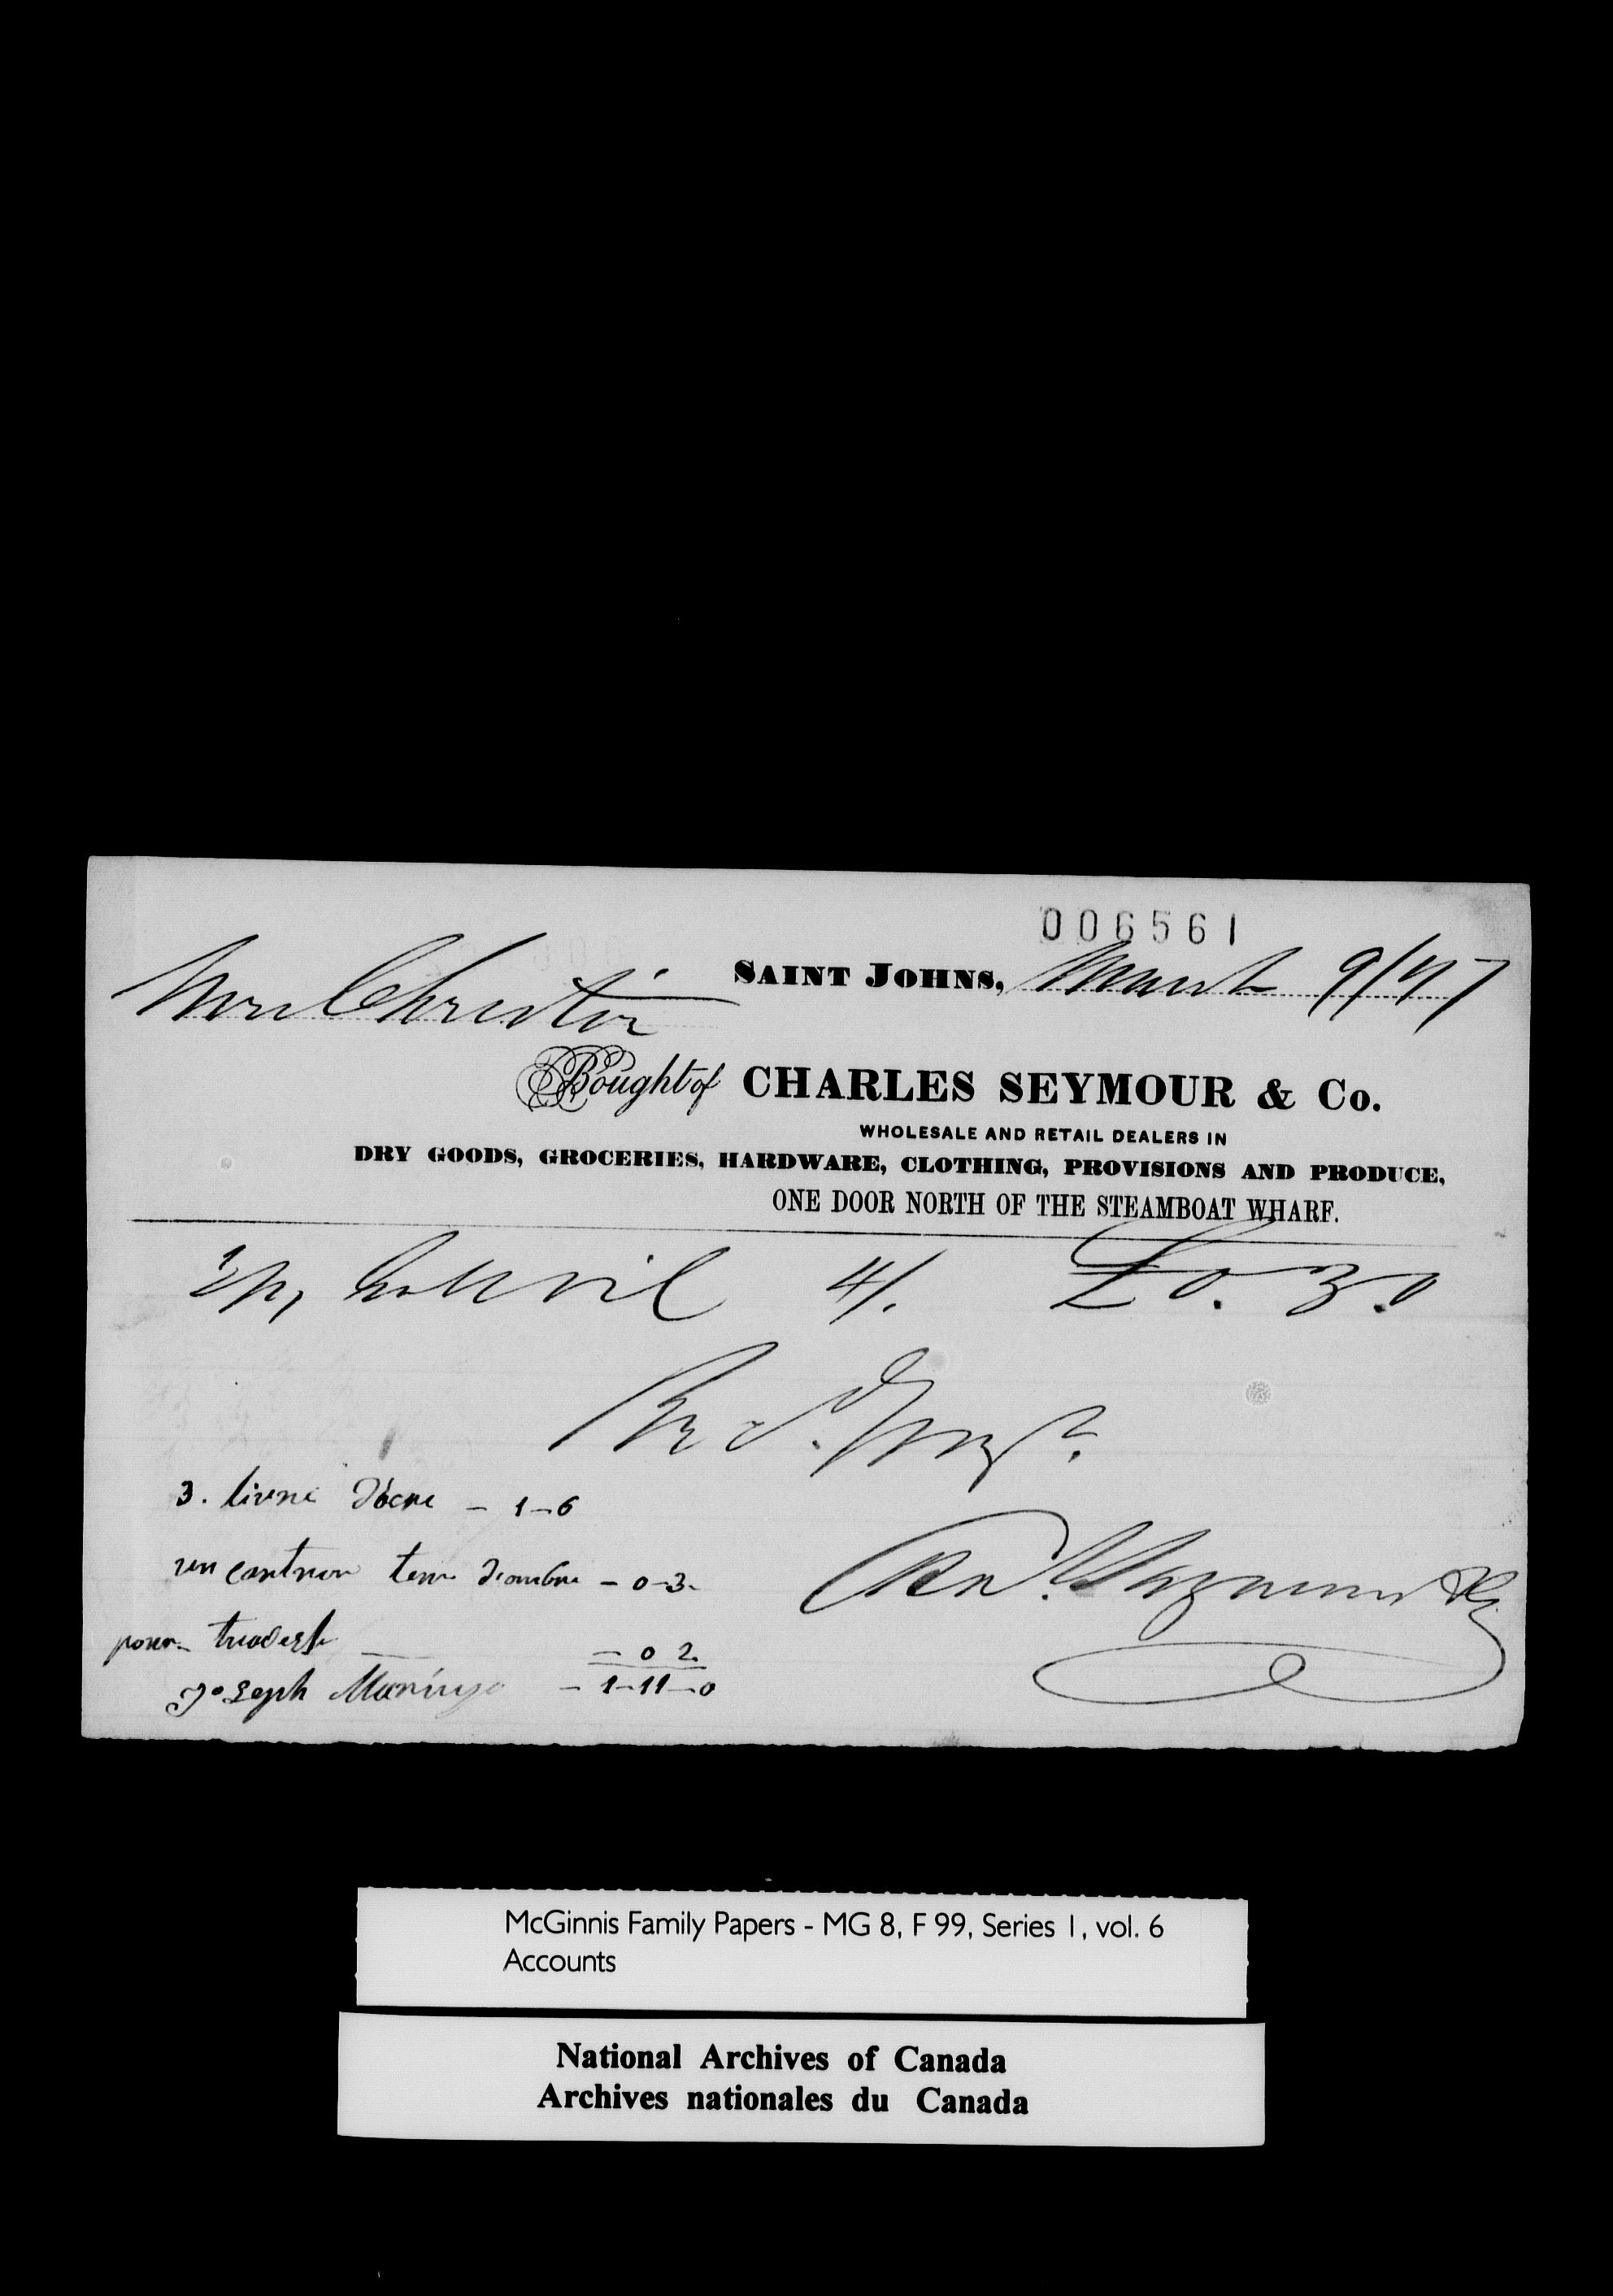 006561
SAINT JOHNS, March 9/47
Mr Christie
Bought of CHARLES SEYMOUR & Co.
WHOLESALE AND RETAIL DEALERS IN
DRY GOODS, GROCERIES, HARDWARE, CLOTHING, PROVISIONS AND PRODUCE,
ONE DOOR NORTH OF THE STEAMBOAT WHARF.
oil 4/. £0.3.0
Recd. Payt.
3. livre - 1-6
un terre d'ombre - 0-3-
pour - 0 2.
Joseph - 1-11-0
Seymour & Co
McGinnis Family Papers - MG 8, F 99, Series 1, vol. 6
Accounts
National Archives of Canada
Archives nationales du Canada